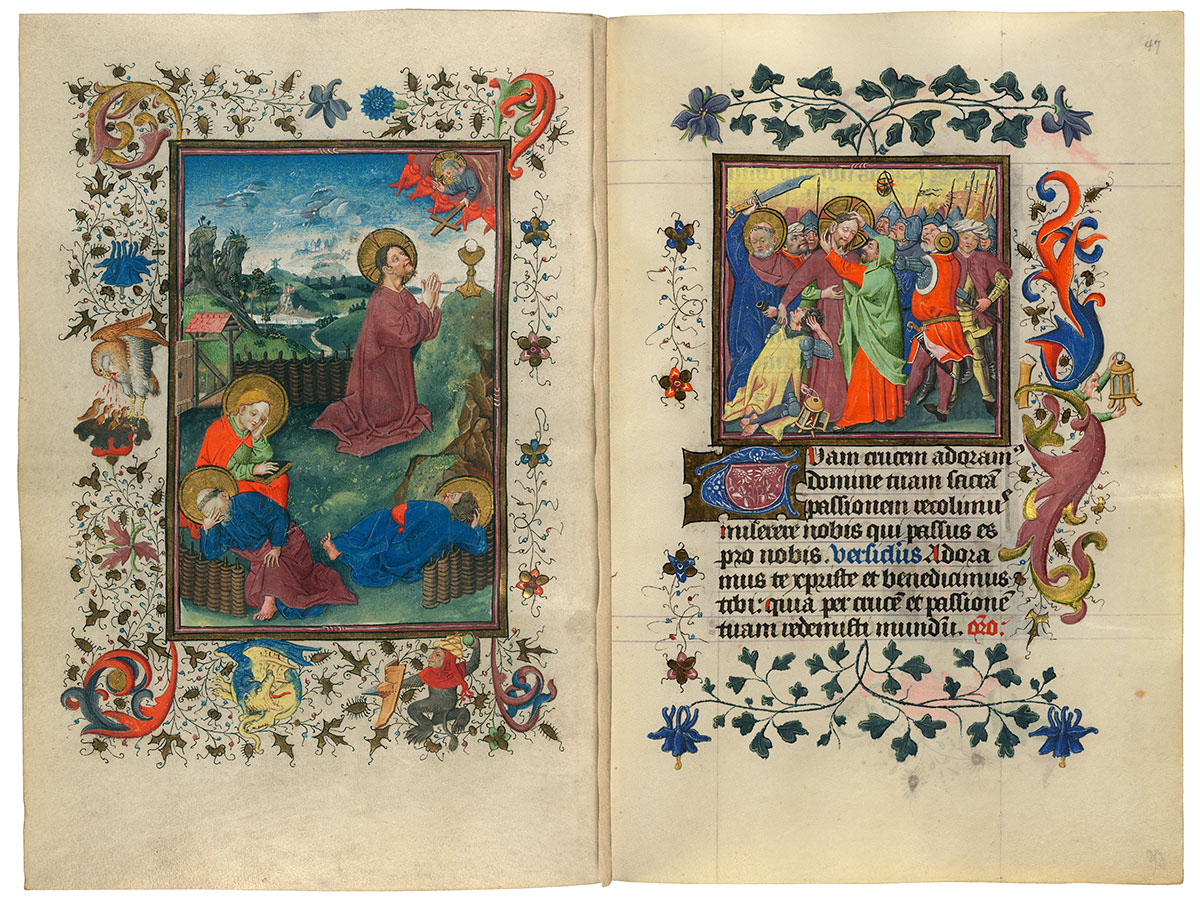 47
Tuam crucem adoram⁹
domine tuam sacrā
passionem recolim⁹
miserere nobis qui passus es
pro nobis. Versiclus Adora
mus te xpriste et benedicamus
tibi: quia per crucē et passionē
tuam redemisti mundū. oro: